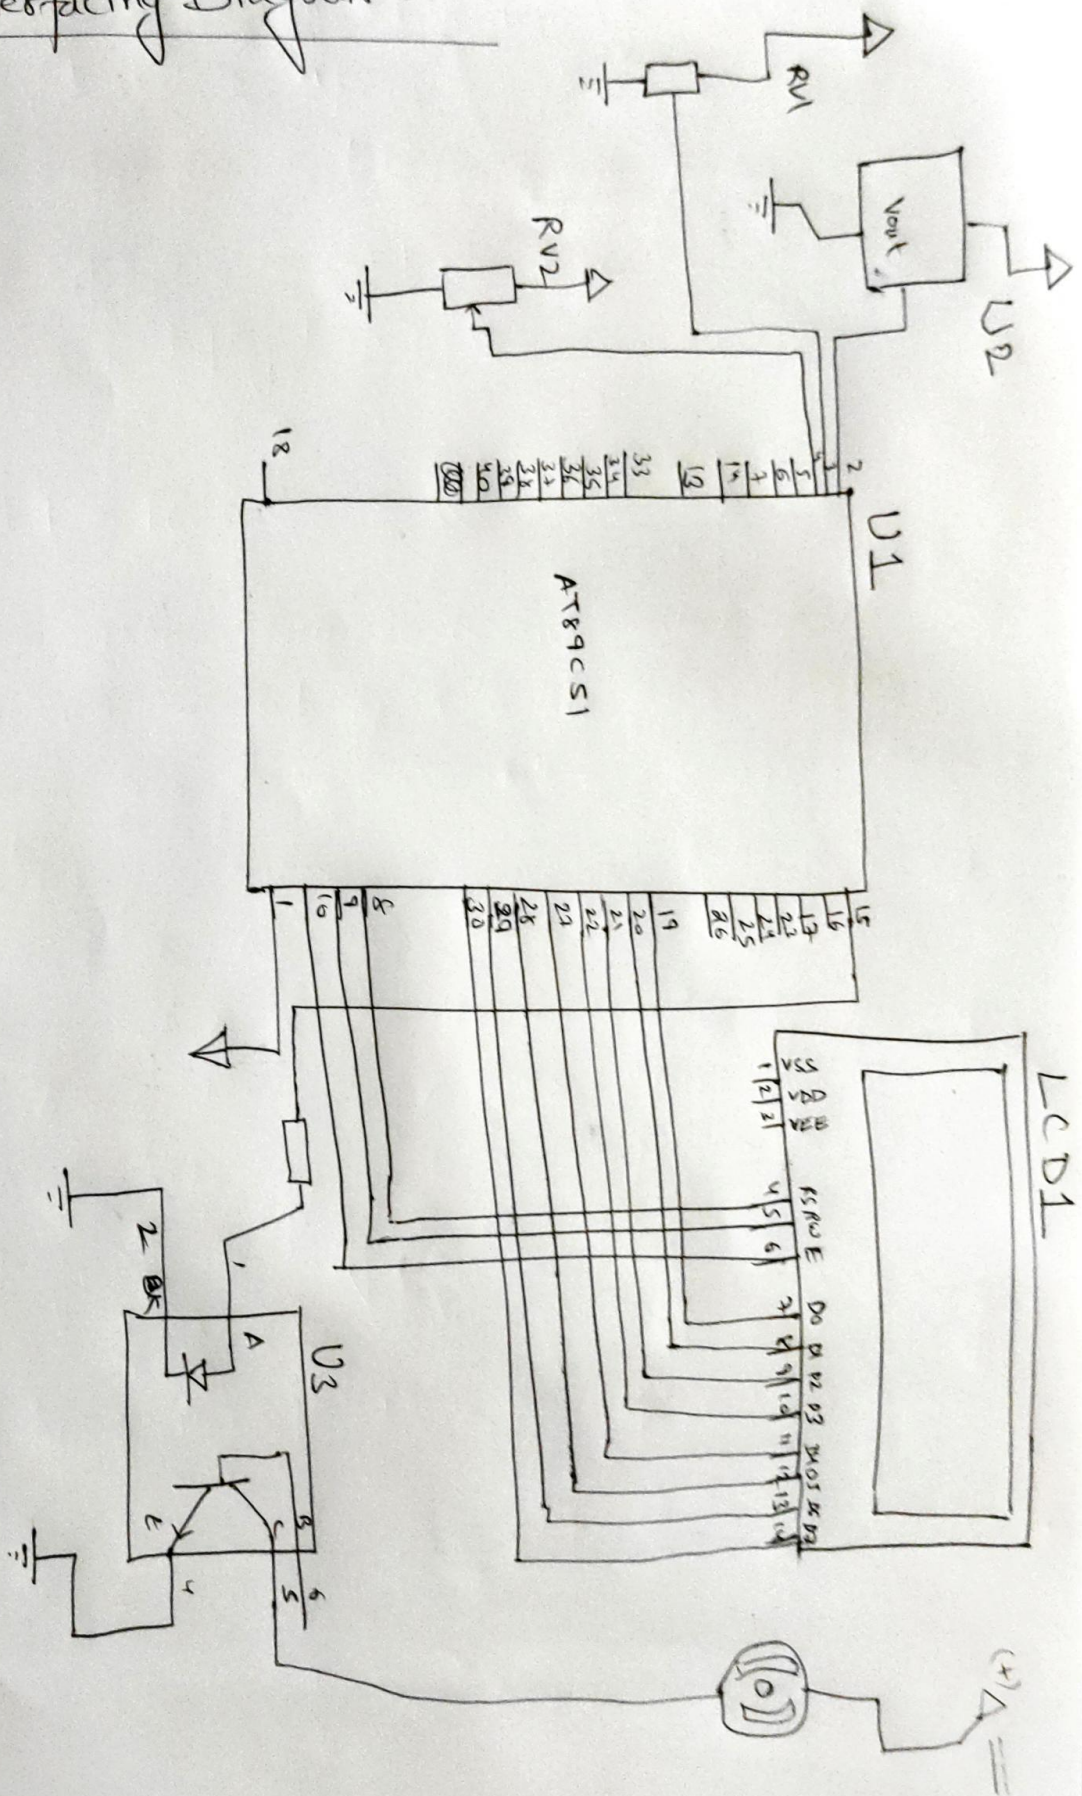 Diagram
RV1
Vout
U2
RV2
U1
2
3
4
5
6
7
14
13
33
34
35
36
37
38
39
40
18
AT89C51
15
16
17
23
24
25
26
19
20
21
22
27
28
29
30
8
9
10
1
LCD1
VSS
VDD
VEE
RS
RW
E
D0
D1
D2
D3
D4
D5
D6
D7
1
2
2
4
5
6
7
8
9
10
11
12
13
14
U3
1
2
A
K
B
C
E
6
5
4
(+)